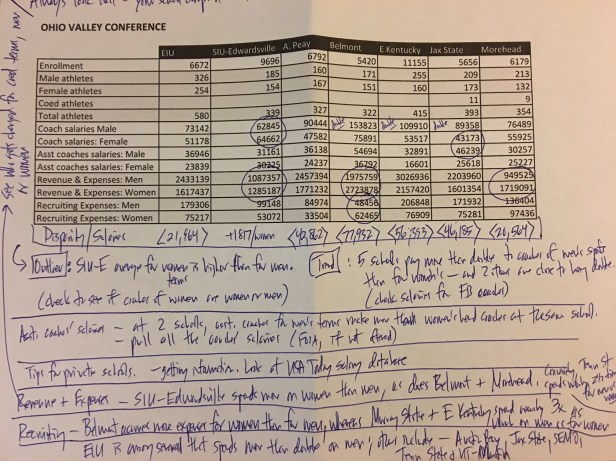 Always look
OHIO VALLEY CONFERENCE
EIU SIU-Edwardsville A. Peay Belmont E Kentucky Jax State Morehead
Enrollment 6672 9696 6792 5420 11155 5656 6179
Male athletes 326 185 160 171 255 209 213
Female athletes 254 154 167 151 160 173 132
Coed athletes 11 9
Total athletes 580 339 327 322 415 393 354
Coach salaries Male 73142 62845 90444 double 153823 double 109910 double 89358 76489
Coach salaries: Female 51178 64662 47582 75891 53517 43173 55925
Asst coaches salaries: Male 36946 31161 36138 54694 32891 46239 30257
Asst coaches salaries: Female 23839 30225 24237 36792 16601 25618 25227
Revenue & Expenses: Men 2433139 1087357 2457394 1975759 3026936 2203960 949529
Revenue & Expenses: Women 1617437 1285187 1771232 2723878 2157420 1601354 1719091
Recruiting Expenses: Men 179306 99148 84974 48456 206848 171932 136404
Recruiting Expenses: Women 75217 53072 33504 62465 76909 75281 97436
Disparity/Salaries <21,964> +1817/women <42,862> <77,932> <56,393> <46,185> <20,564>
Outlier: SIU-E average for women is higher than for men.
teams
(check to see if coaches of women are women or men)
Trend: 5 schools pay more than double to coaches of men's sports
than for women's — and 2 others are close to being double.
(check salaries for FB coaches)
Asst. coaches' salaries — at 2 schools, asst. coaches for men's teams make more than women's head coaches at the same school.
— pull all the coaches' salaries (FOIA, if not offered)
Tips for private schools. — getting information. Look at USA Today salary database
Revenue + Expenses — SIU-Edwardsville spends more on women than men, as does Belmont + Morehead.
Recruiting — Belmont incurs more expenses for women than for men, whereas Murray State + E Kentucky spend nearly 3x as
much on men as for women
EIU is among several that spends more than double on men; others include — Austin Peay, Jax State, SEMO,
Tenn State + UT-Martin